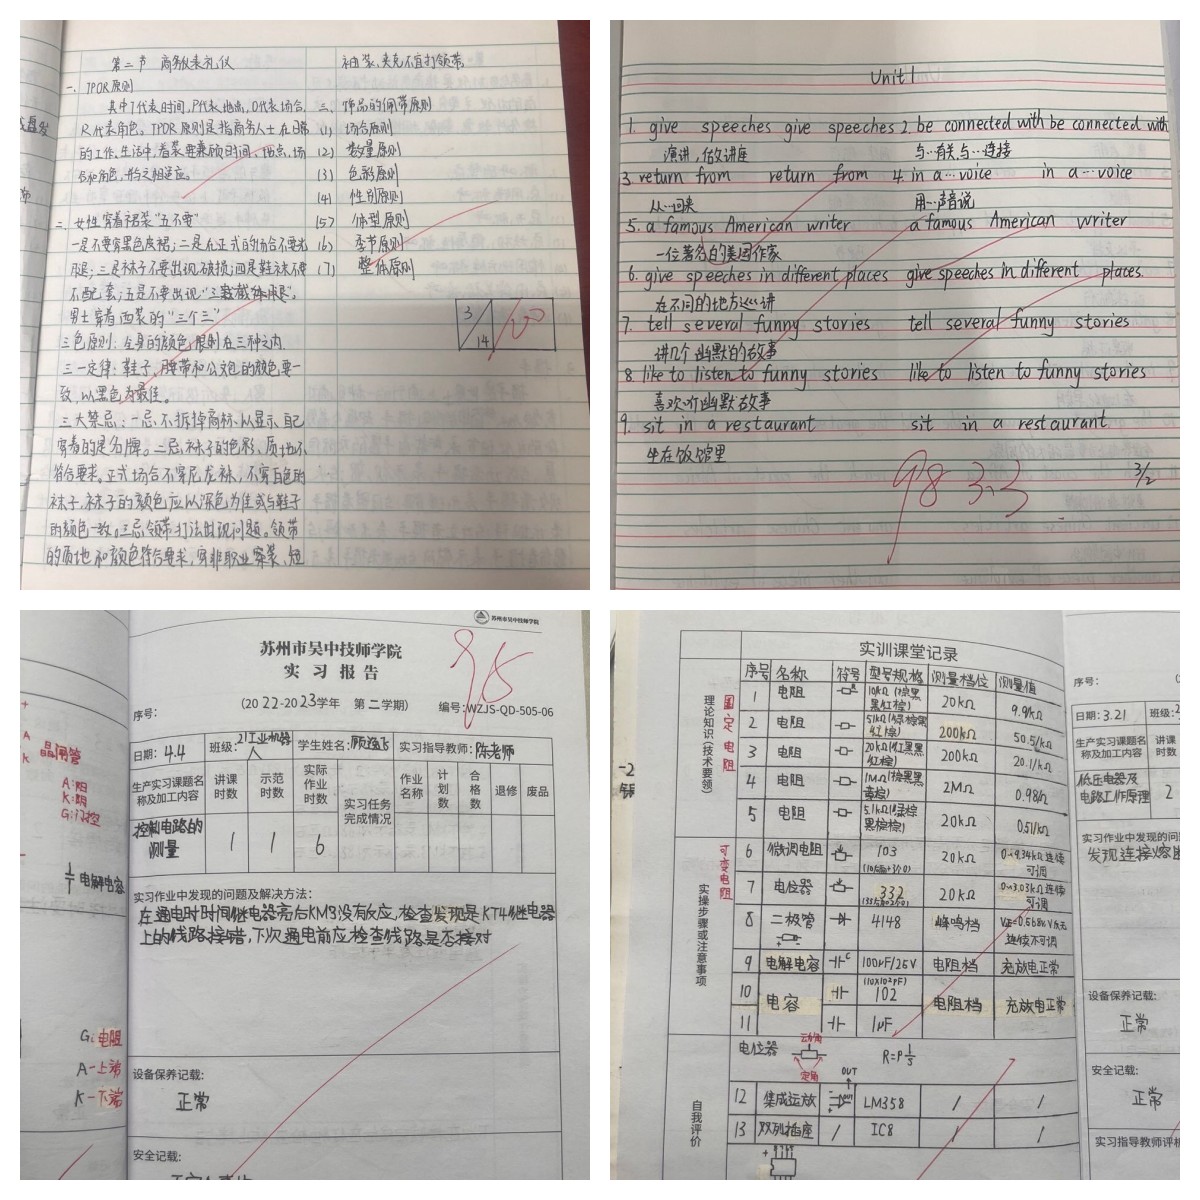 第二节 商务服装礼仪
一、TPOR原则
其中T代表时间,P代表地点,O代表场合,
R代表角色。TPOR原则是指商务人士在日常
的工作、生活中,着装要兼顾时间、地点、场
合和角色,并与之相适应。
二、女性穿着裙装"五不要"
一是不要穿黑色皮裙;二是在正式的场合不要光
腿;三是袜子不要出现破损;四是鞋袜不要
不配套;五是不要出现"三截腿"。
男士穿着西装的"三个三"
三色原则:全身的颜色限制在三种之内
三一定律:鞋子、腰带和公文包的颜色要一
致,以黑色为最佳。
三大禁忌:一忌不拆掉商标,以显示自己
穿着的是名牌。二忌袜子的色彩、质地不
符合要求。正式场合不穿尼龙袜,不穿白色的
袜子,袜子的颜色应以深色为佳或与鞋子
的颜色一致。三忌领带打法出现问题。领带
的质地和颜色符合要求,穿非职业套装、短
袖装、夹克不宜打领带。
三、饰品的佩带原则
(1) 场合原则
(2) 数量原则
(3) 色彩原则
(4) 性别原则
(5) 体型原则
(6) 季节原则
(7) 整体原则
3/14
Unit 1
1. give speeches give speeches 2. be connected with be connected with
演讲,做讲座 与…有关,与…连接
3. return from return from 4. in a…voice in a…voice
从…回来 用…声音说
5. a famous American writer a famous American writer
一位著名的美国作家
6. give speeches in different places give speeches in different places
在不同的地方巡讲
7. tell several funny stories tell several funny stories
讲几个幽默的故事
8. like to listen to funny stories like to listen to funny stories
喜欢听幽默故事
9. sit in a restaurant sit in a restaurant
坐在饭馆里
98 3.3
3/2
苏州市吴中技师学院
苏州市吴中技师学院
实习报告
95
(2022-2023学年 第二学期)
序号: 编号:WZJS-QD-505-06
日期: 4.4 班级: 21工业机器人 学生姓名: 实习指导教师: 陈老师
生产实习课题名称及加工内容 讲课时数 示范时数 实际作业时数 实习任务完成情况 作业名称 计划数 合格数 退修 废品
控制电路的测量 1 1 6
实习作业中发现的问题及解决方法:
在通电时时间继电器亮后KM3没有反应,检查发现是KT4继电器
上的线路接错,下次通电前应检查线路是否接对
设备保养记载:
正常
安全记载:
晶闸管
A:阳
K:阴
G:门控
电解电容
G:电阻
A-上端
K-下端
实训课堂记录
理论知识(技术要领)
实操步骤或注意事项
自我评价
固定电阻
可变电阻
序号 名称 符号 型号规格 测量档位 测量值
1 电阻 10kΩ(棕黑黑红棕) 20kΩ 9.9kΩ
2 电阻 51kΩ(绿棕黑红棕) 200kΩ 50.5kΩ
3 电阻 20kΩ(红黑黑红棕) 200kΩ 20.1kΩ
4 电阻 1MΩ(棕黑黑黄棕) 2MΩ 0.98Ω
5 电阻 5.1kΩ(绿棕黑棕棕) 20kΩ 0.51kΩ
6 微调电阻 103 20kΩ 0~9.34kΩ连续可调
7 电位器 332 20kΩ 0~3.03kΩ连续可调
8 二极管 4148 蜂鸣档 连续不可调
9 电解电容 C 100μF/25V 电阻档 充放电正常
10 电容 (10X10²pF) 102 电阻档 充放电正常
11 1μF
电位器 动角 定角 R=P
OUT
12 集成运放 LM358 / /
13 双列插座 / IC8 / /
序号:
日期: 3.21 班级:
生产实习课题名称及加工内容 讲课时数
低压电器及电路工作原理 2
实习作业中发现的问题
发现连接熔断
设备保养记载:
正常
安全记载:
正常
实习指导教师评